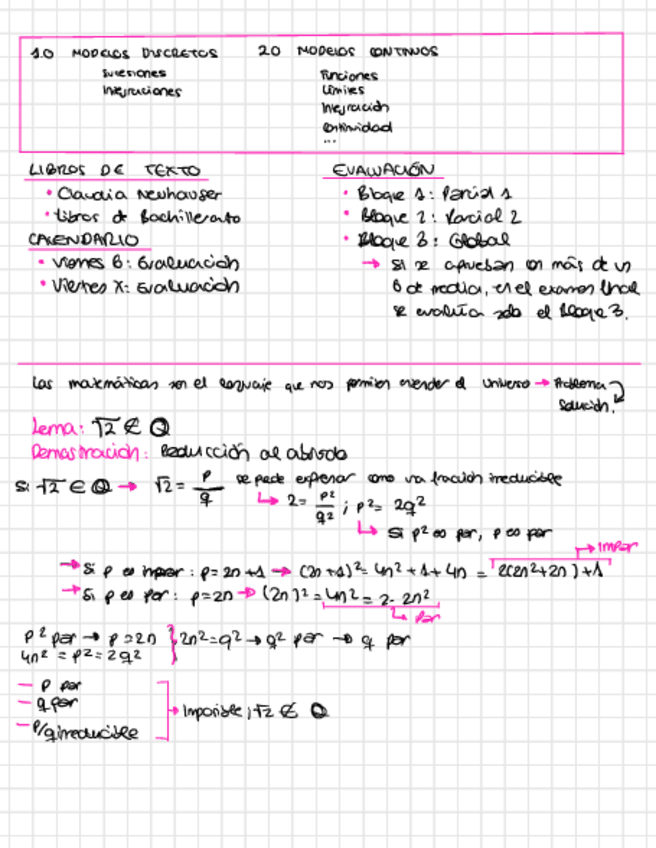 1.0 MODELOS DISCRETOS
Sucesiones
Integraciones
2.0 MODELOS CONTINUOS
Funciones
Límites
Integración
Continuidad
...
LIBROS DE TEXTO
• Claudia Neuhauser
• Libros de Bachillerato
CALENDARIO
• Viernes 6: Evaluación
• Viernes X: Evaluación
EVALUACIÓN
• Bloque 1: Parcial 1
• Bloque 2: Parcial 2
• Bloque 3: Global
→ Si se aprueban con más de un
6 de media, en el examen final
se evalúa solo el bloque 3.
Las matemáticas son el lenguaje que nos permiten entender el universo → Problema
Solución.
Lema: √2 ∉ Q
Demostración: Reducción al absurdo
Si √2 ∈ Q → √2 = p/q se puede expresar como una fracción irreducible
↳ 2 = p²/q² ; p² = 2q²
↳ Si p² es par, p es par
→ Si p es impar: p = 2n+1 → (2n+1)² = 4n²+1+4n = 2(2n²+2n)+1 → impar
→ Si p es par: p = 2n → (2n)² = 4n² = 2·2n²
↳ Par
p² par → p = 2n } 2n² = q² → q² par → q par
4n² = p² = 2q²
— p par
— q par
— p/q irreducible
→ Imposible; √2 ∉ Q